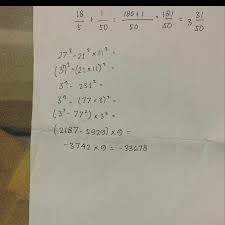 18/5 + 1/50 = 180+1/50 = 181/50 = 3 31/50
27³ - 21² × 11² =
(3³)³ - (21 × 11)² =
3⁹ - 231² =
3⁹ - (77 × 3)² =
(3⁷ - 77²) × 3² =
(2187 - 5929) × 9 =
-3742 × 9 = -33678